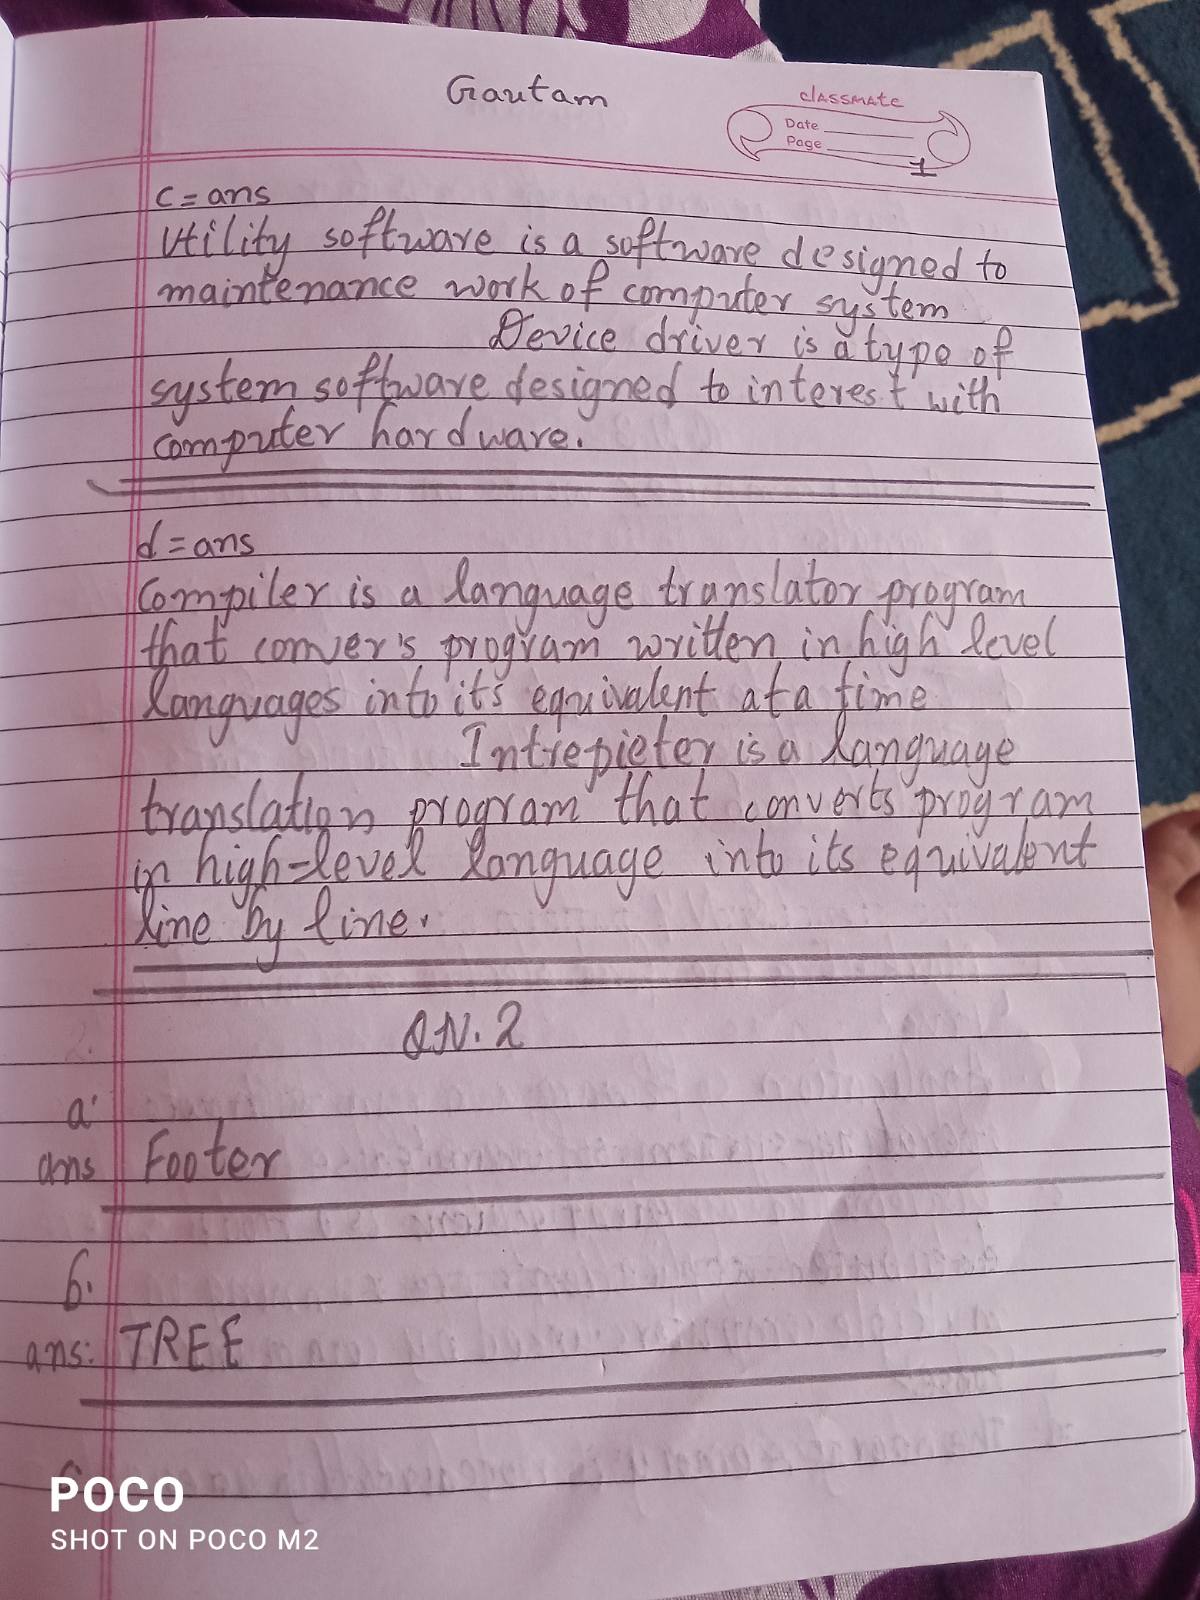 Gautam
classmate
Date
Page
1
c = ans
Utility software is a software designed to
maintenance work of computer system
Device driver is a type of
system software designed to interest with
computer hardware.
d = ans
Compiler is a language translator program
that conver's program written in high level
languages into its equivalent at a time
Intrepieter is a language
translation program that converts program
in high-level language into its equivalent
line by line.
QN. 2
a.
ans Footer
b.
ans: TREE
POCO
SHOT ON POCO M2